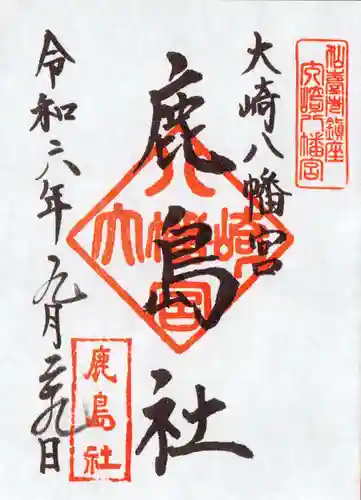 大崎八幡宮
大崎八幡宮
鹿島社
大崎八幡宮
令和六年九月二十九日
鹿島社